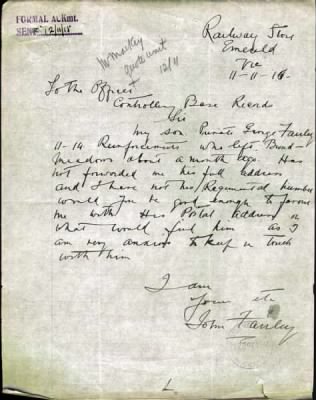 FORMAL ACKmt.
SENT 12/11/18
Mr Markey
quote unit
12/11
Railway Store
Emerald
Vic
11-11-18
To the Officer
Controlling Base Record
Sir
My son Private George Fairley
11-14 Reinforcements who left Broad-
Meadows about a month ago Has
not forwarded me his full address
and I have not his Regimental number
would you be good enough to favour
me with His Postal address or
what would find him as I
am very anxious to keep in touch
with him
I am
Yours etc
John Fairley